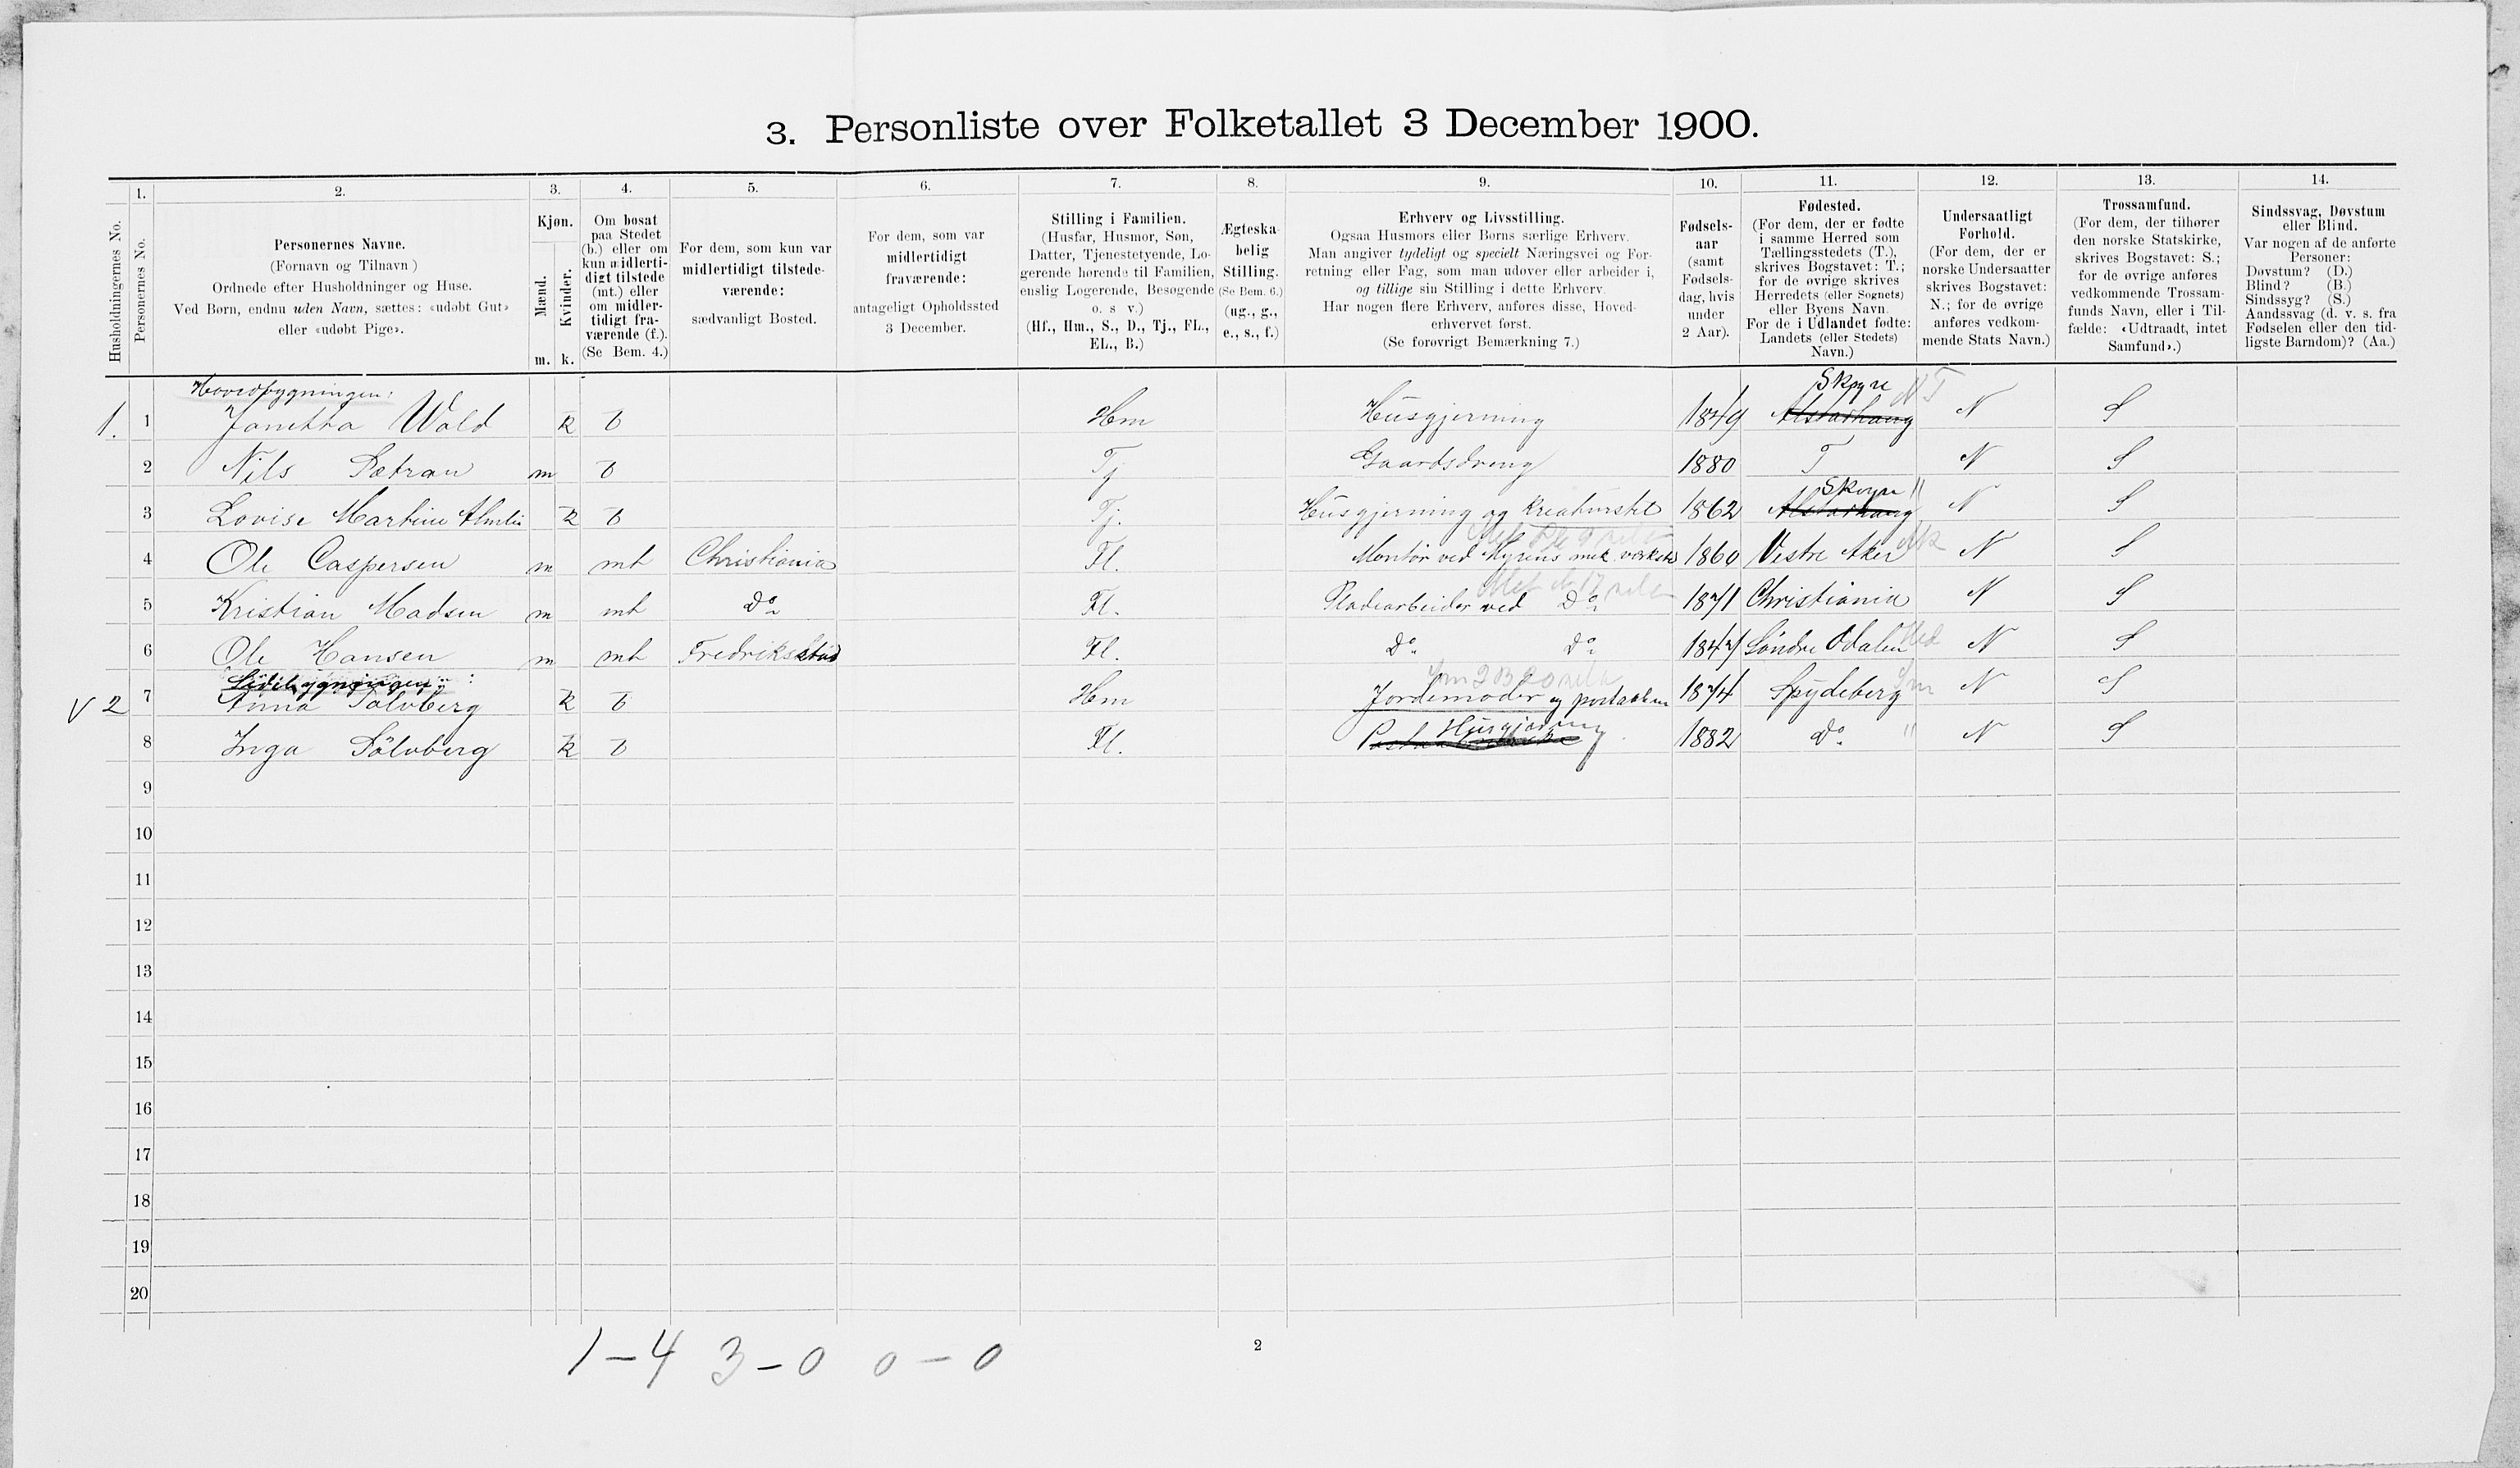 3. Personliste over Folketallet 3 December 1900.
Husholdningernes No.
1. Personernes No.
2. Personernes Navne.
(Fornavn og Tilnavn)
Ordnede efter Husholdninger og Huse.
Ved Børn, endnu uden Navn, sættes: «udøbt Gut»
eller «udøbt Pige».
3. Kjøn.
Mænd. Kvinder.
m. k.
4. Om bosat
paa Stedet
(b.) eller om
kun midlerti-
digt tilstede
(mt.) eller
om midler-
tidigt fra-
værende (f.).
(Se Bem. 4.)
5. For dem, som kun var
midlertidigt tilstede-
værende:
sædvanligt Bosted.
6. For dem, som var
midlertidigt
fraværende:
antageligt Opholdssted
3 December.
7. Stilling i Familien.
(Husfar, Husmor, Søn,
Datter, Tjenestetyende, Lo-
gerende hørende til Familien,
enslig Logerende, Besøgende
o. s v.)
(Hf., Hm., S., D., Tj., FL.,
EL., B.)
8. Ægteska-
belig
Stilling.
(Se Bem. 6.)
(ug., g.,
e., s., f.)
9. Erhverv og Livsstilling.
Ogsaa Husmors eller Børns særlige Erhverv.
Man angiver tydeligt og specielt Næringsvei og For-
retning eller Fag, som man udøver eller arbeider i,
og tillige sin Stilling i dette Erhverv.
Har nogen flere Erhverv, anføres disse, Hoved-
erhvervet først.
(Se forøvrigt Bemærkning 7.)
10. Fødsels-
aar
(samt
Fødsels-
dag, hvis
under
2 Aar).
11. Fødested.
(For dem, der er fødte
i samme Herred som
Tællingsstedets (T.),
skrives Bogstavet: T.;
for de øvrige skrives
Herredets (eller Sognets)
eller Byens Navn.
For de i Udlandet fødte:
Landets (eller Stedets)
Navn.)
12. Undersaatligt
Forhold.
(For dem, der er
norske Undersaatter
skrives Bogstavet:
N.; for de øvrige
anføres vedkom-
mende Stats Navn.)
13. Trossamfund.
(For dem, der tilhører
den norske Statskirke,
skrives Bogstavet: S.;
for de øvrige anføres
vedkommende Trossam-
funds Navn, eller i Til-
fælde: «Udtraadt, intet
Samfund».)
14. Sindssvag, Døvstum
eller Blind.
Var nogen af de anførte
Personer:
Døvstum? (D.)
Blind? (B.)
Sindssyg? (S.)
Aandssvag (d. v. s. fra
Fødselen eller den tid-
ligste Barndom)? (Aa.)
Hovedbygningen: Skogn NT
1. 1 Janetha Wold k b Hm Husgjerning 1849 Alstadhaug N S
2 Nils Sætran m b Tj Gaardsdreng 1880 T N S
Skogn "
3 Lovise Martine Almlie k b Tj. Husgjerning og Kreaturstel 1862 Alstadhaug N S
4 Ole Caspersen m mt Christiania Fl. Montør ved Myrens mek. værksted 1860 Vestre Aker Ak N S
5 Kristian Madsen m mt Do Fl. Pladearbeider ved Do 1871 Christiania N S
6 Ole Hansen m mt Fredriksstad Fl. Do Do 1847 Söndre Odalen Hed N S
Sidebygningen:
V 2 7 Anna Sölvberg k b Hm Jordemoder og postaabn 1874 Spydeberg Sm N S
Husgjerning
8 Inga Sölvberg k b Fl. 1882 do " N S
9
10
11
12
13
14
15
16
17
18
19
20
1-4 3-0 0-0
2